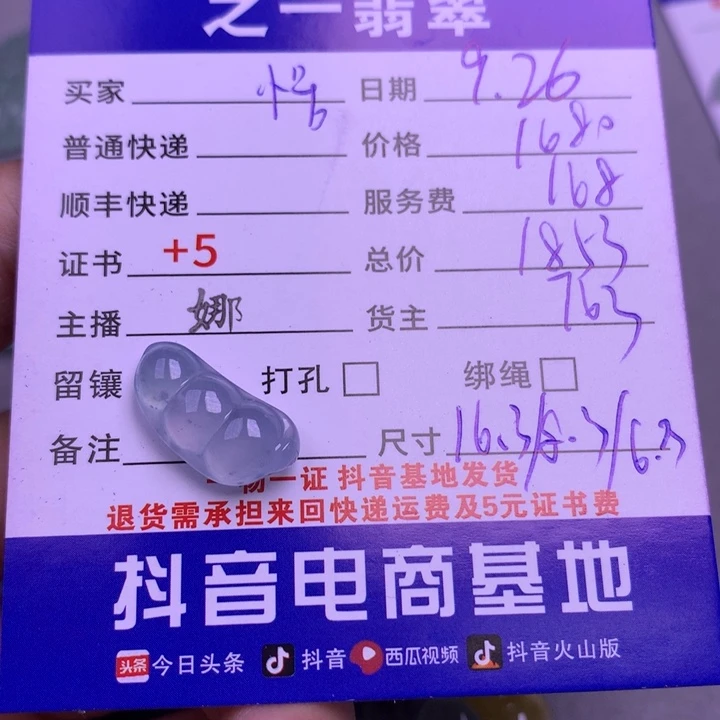 之一翡翠
买家 日期 9.26
普通快递 价格 1680
顺丰快递 服务费 168
证书 +5 总价 1853
主播 娜 货主 763
留镶 打孔 绑绳
备注 尺寸 16.3/8.3/6.3
一物一证 抖音基地发货
退货需承担来回快递运费及5元证书费
抖音电商基地
头条 今日头条 抖音 西瓜视频 抖音火山版